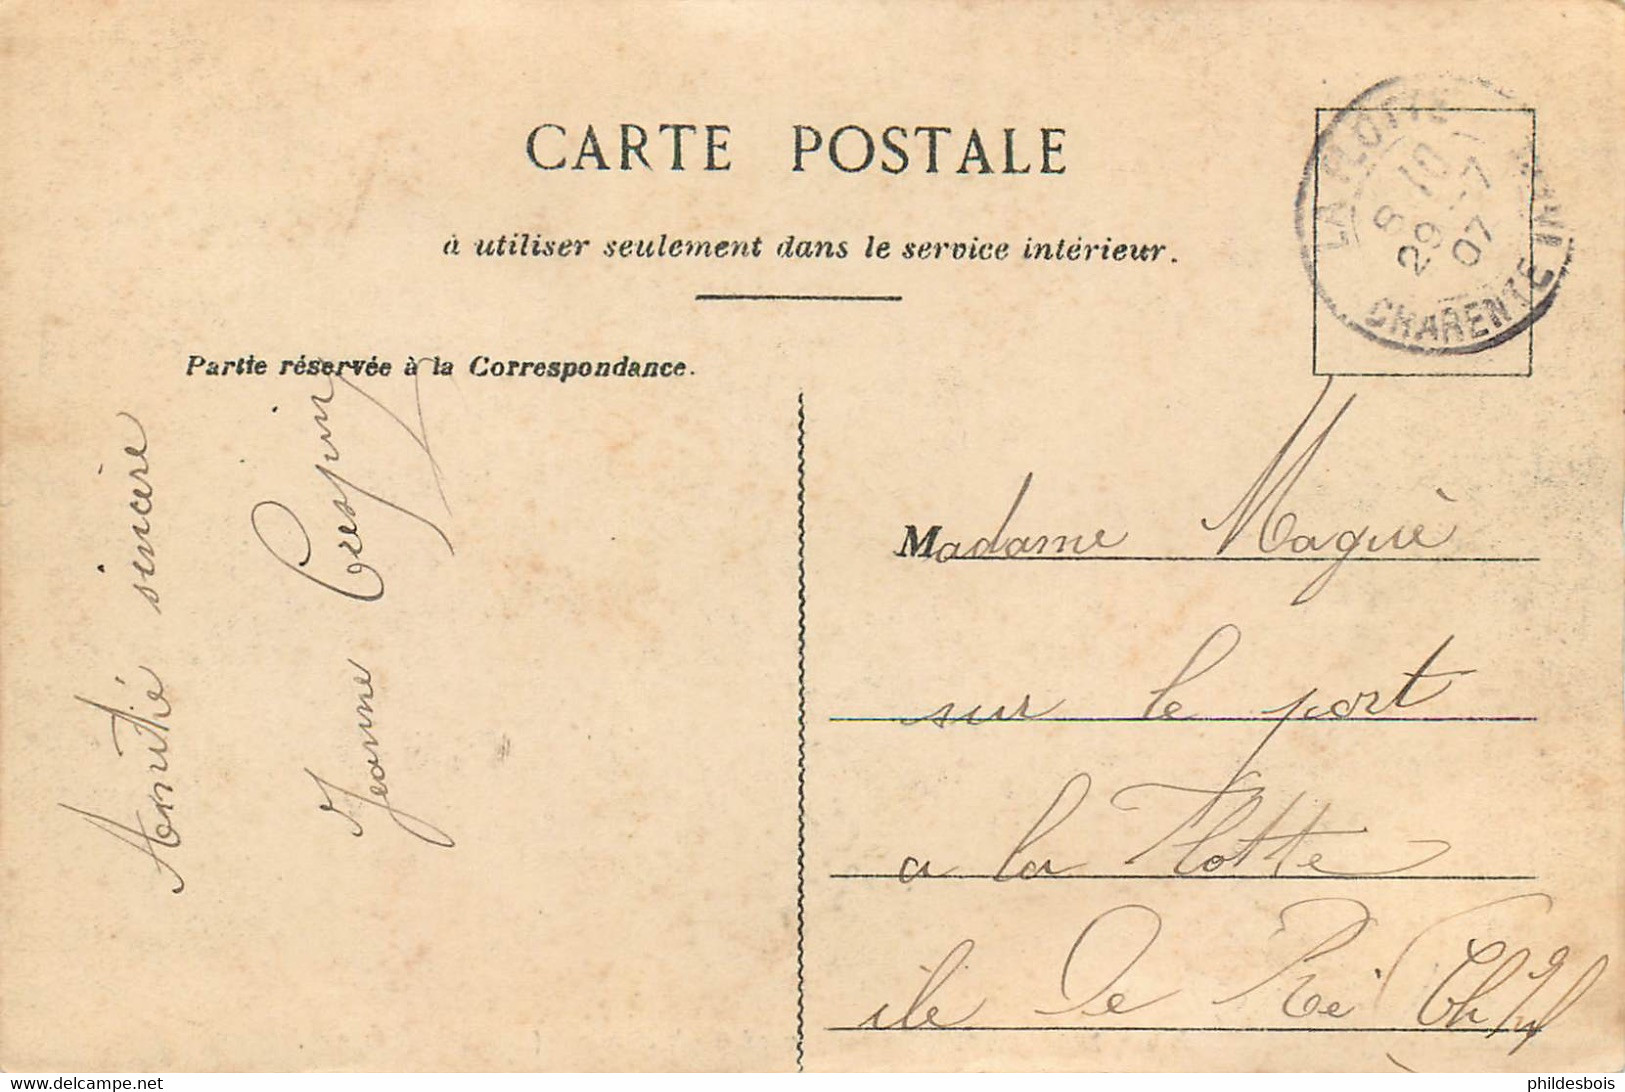 CARTE POSTALE
à utiliser seulement dans le service intérieur.
LA FLOTTE
8 10
29 -7
07
CHARENTE INF
Partie réservée à la Correspondance.
Amitié sincère
Jeanne Crespin
Madame Maguè
sur le port
a la Flotte
ile De Ré (Ch Inf
phildesbois